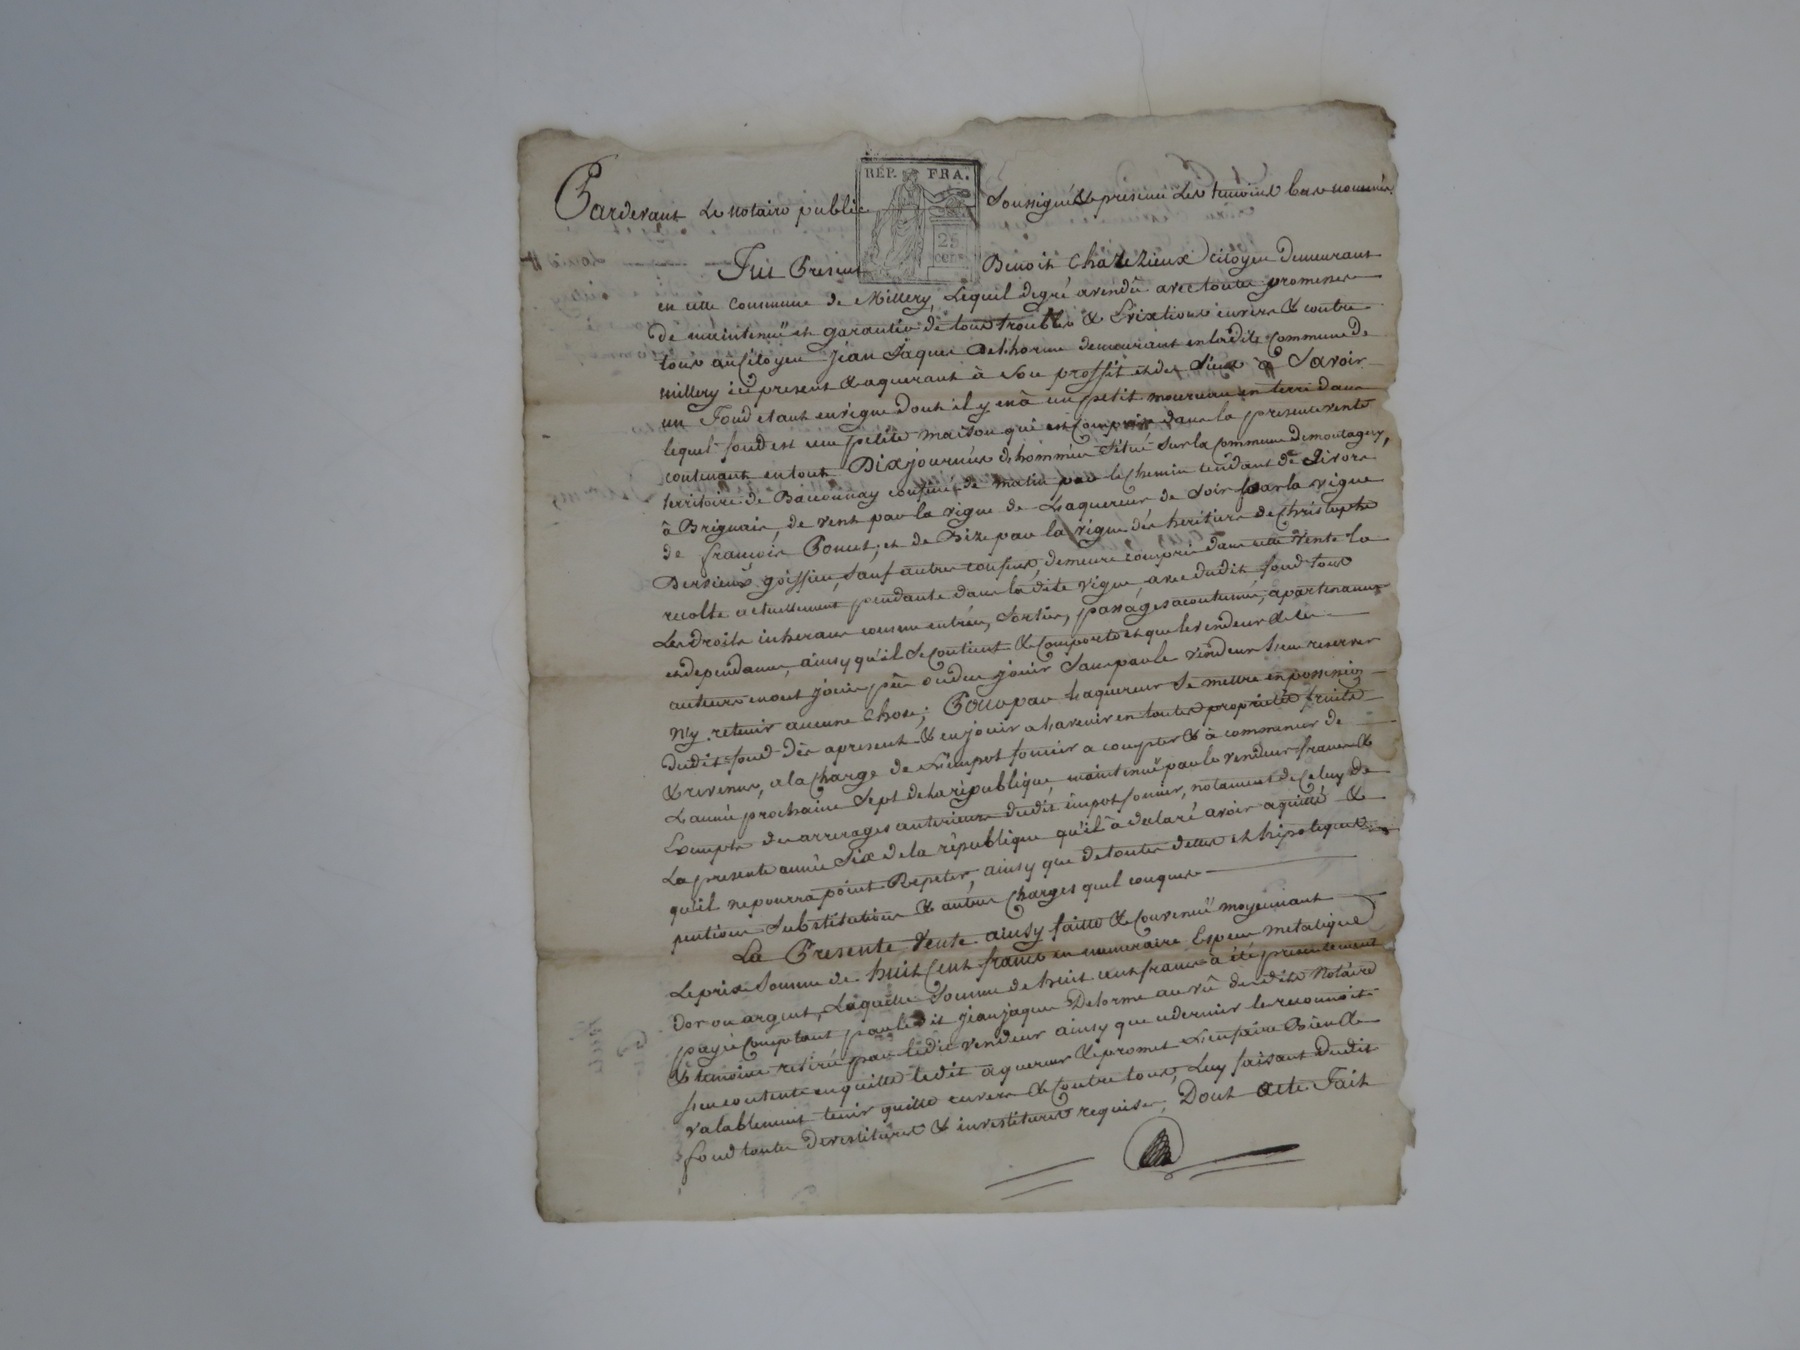 Pardevant Le notaire public Soussigné & presence Les temoins bas nommés
RÉP. FRA.
25
CENT
Fut Present Benoit Chazezieux citoyen demeurant
en cette Commune de Millery, Lequel de gré a vendu avec toutes promesses
de maintenüe et garantie de tous troubles & Evixtions envers & contre
tous au Citoyen Jean Jaques Delhorme demeurant en ladite Commune de
millery icy present & aquerant à son proffit et des Siens à Savoir
un Fond etant en vigne dont il y en à un petit mourceau en terre dans
lequel fond est une petite maison qui est comprise dans la presente vente
contenant en tout Dix journées d'hommées Situé Sur la Commune de montagny,
territoire de Bacounnay confiné de matin par le Chemin tendant de Givors
à Brignais, de vent par la vigne de L'aquereur de Soir par la vigne
de françois Poncet; et de Bize par la vigne des heritiers de Christophe
Dervieux goiffieu, Sauf autres confins, demeure compris dans cette vente la
recolte actuellement pendante dans la dite vigne, avec dudit fond tous
Les droits inherans comme entrées, Sorties, passages acoutumés, apartenances
et dependances, ainsy qu'il Se Contient & Comporte et que le vendeur & les
auteurs en ont jouis, pû ou du en jouir Sans par le vendeur S'en reserver
n'y retenir aucune Chose; Pour par L'aquereur Se mettre en possession
dudit fond dès apresent & en jouir a L'avenir en toutes propriété fruits
& revenus, a la Charge de L'impot foncier a compter & à commencer de
L'année prochaine Sept de la république, maintenüe par le vendeur franc &
Exempte des arrerages anterieurs dudit impot foncier, notament de Celuy de
La presente année Six de la république qu'il à declaré avoir aquitté &
qu'il ne pourra point Repeter, ainsy que de toutes dettes et hipoteques
pentions Substitutions & autres Charges quel conques
La Presente Vente ainsy faitte & Convenüe moyennant
Le prix Somme de huit Cent francs en numeraire Espece metalique
d'or ou argent, Laquelle Somme de huit cent francs a été presentement
payée Comptant par le dit Jean jaques Delorme au vû dudit Notaire
& temoins retirée par ledit vendeur ainsy que ce dernier le reconnoit
s'en contente en quitte ledit aquereur & promet L'en faire Bien &
valablement tenir quitte envers & Contre tous, Luy faisant dudit
fond toutes devestitures & investitures requises; Dont acte Fait